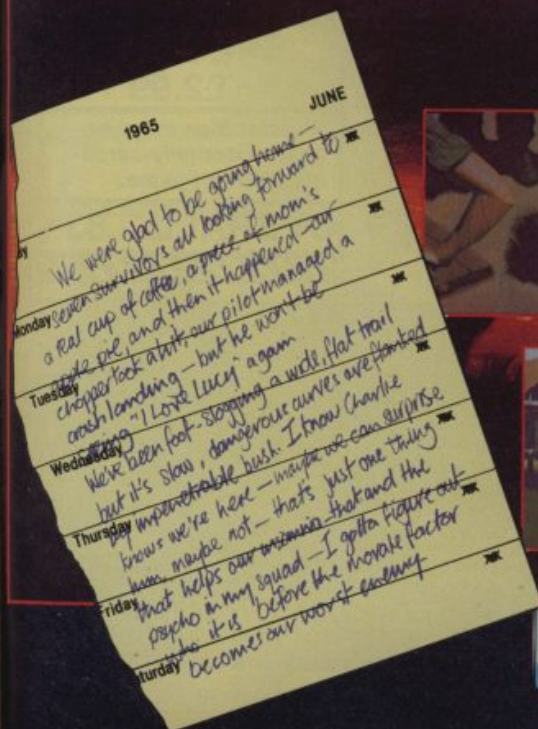 1965 JUNE
We were glad to be going home –
seven survivors all looking forward to
a real cup of coffee, a piece of mom's
apple pie, and then it happened – our
chopper took a hit, our pilot managed a
crash landing – but he won't be
"I Love Lucy" again
We've been foot-slogging a wide, flat trail
but it's slow, dangerous curves are flanked
by impenetrable bush. I know Charlie
knows we're here – maybe we can surprise
him, maybe not – that's just one thing
that helps our insomnia – that and the
psycho in my squad – I gotta figure out
who it is before the morale factor
becomes our worst enemy
Monday
Tuesday
Wednesday
Thursday
Friday
turday